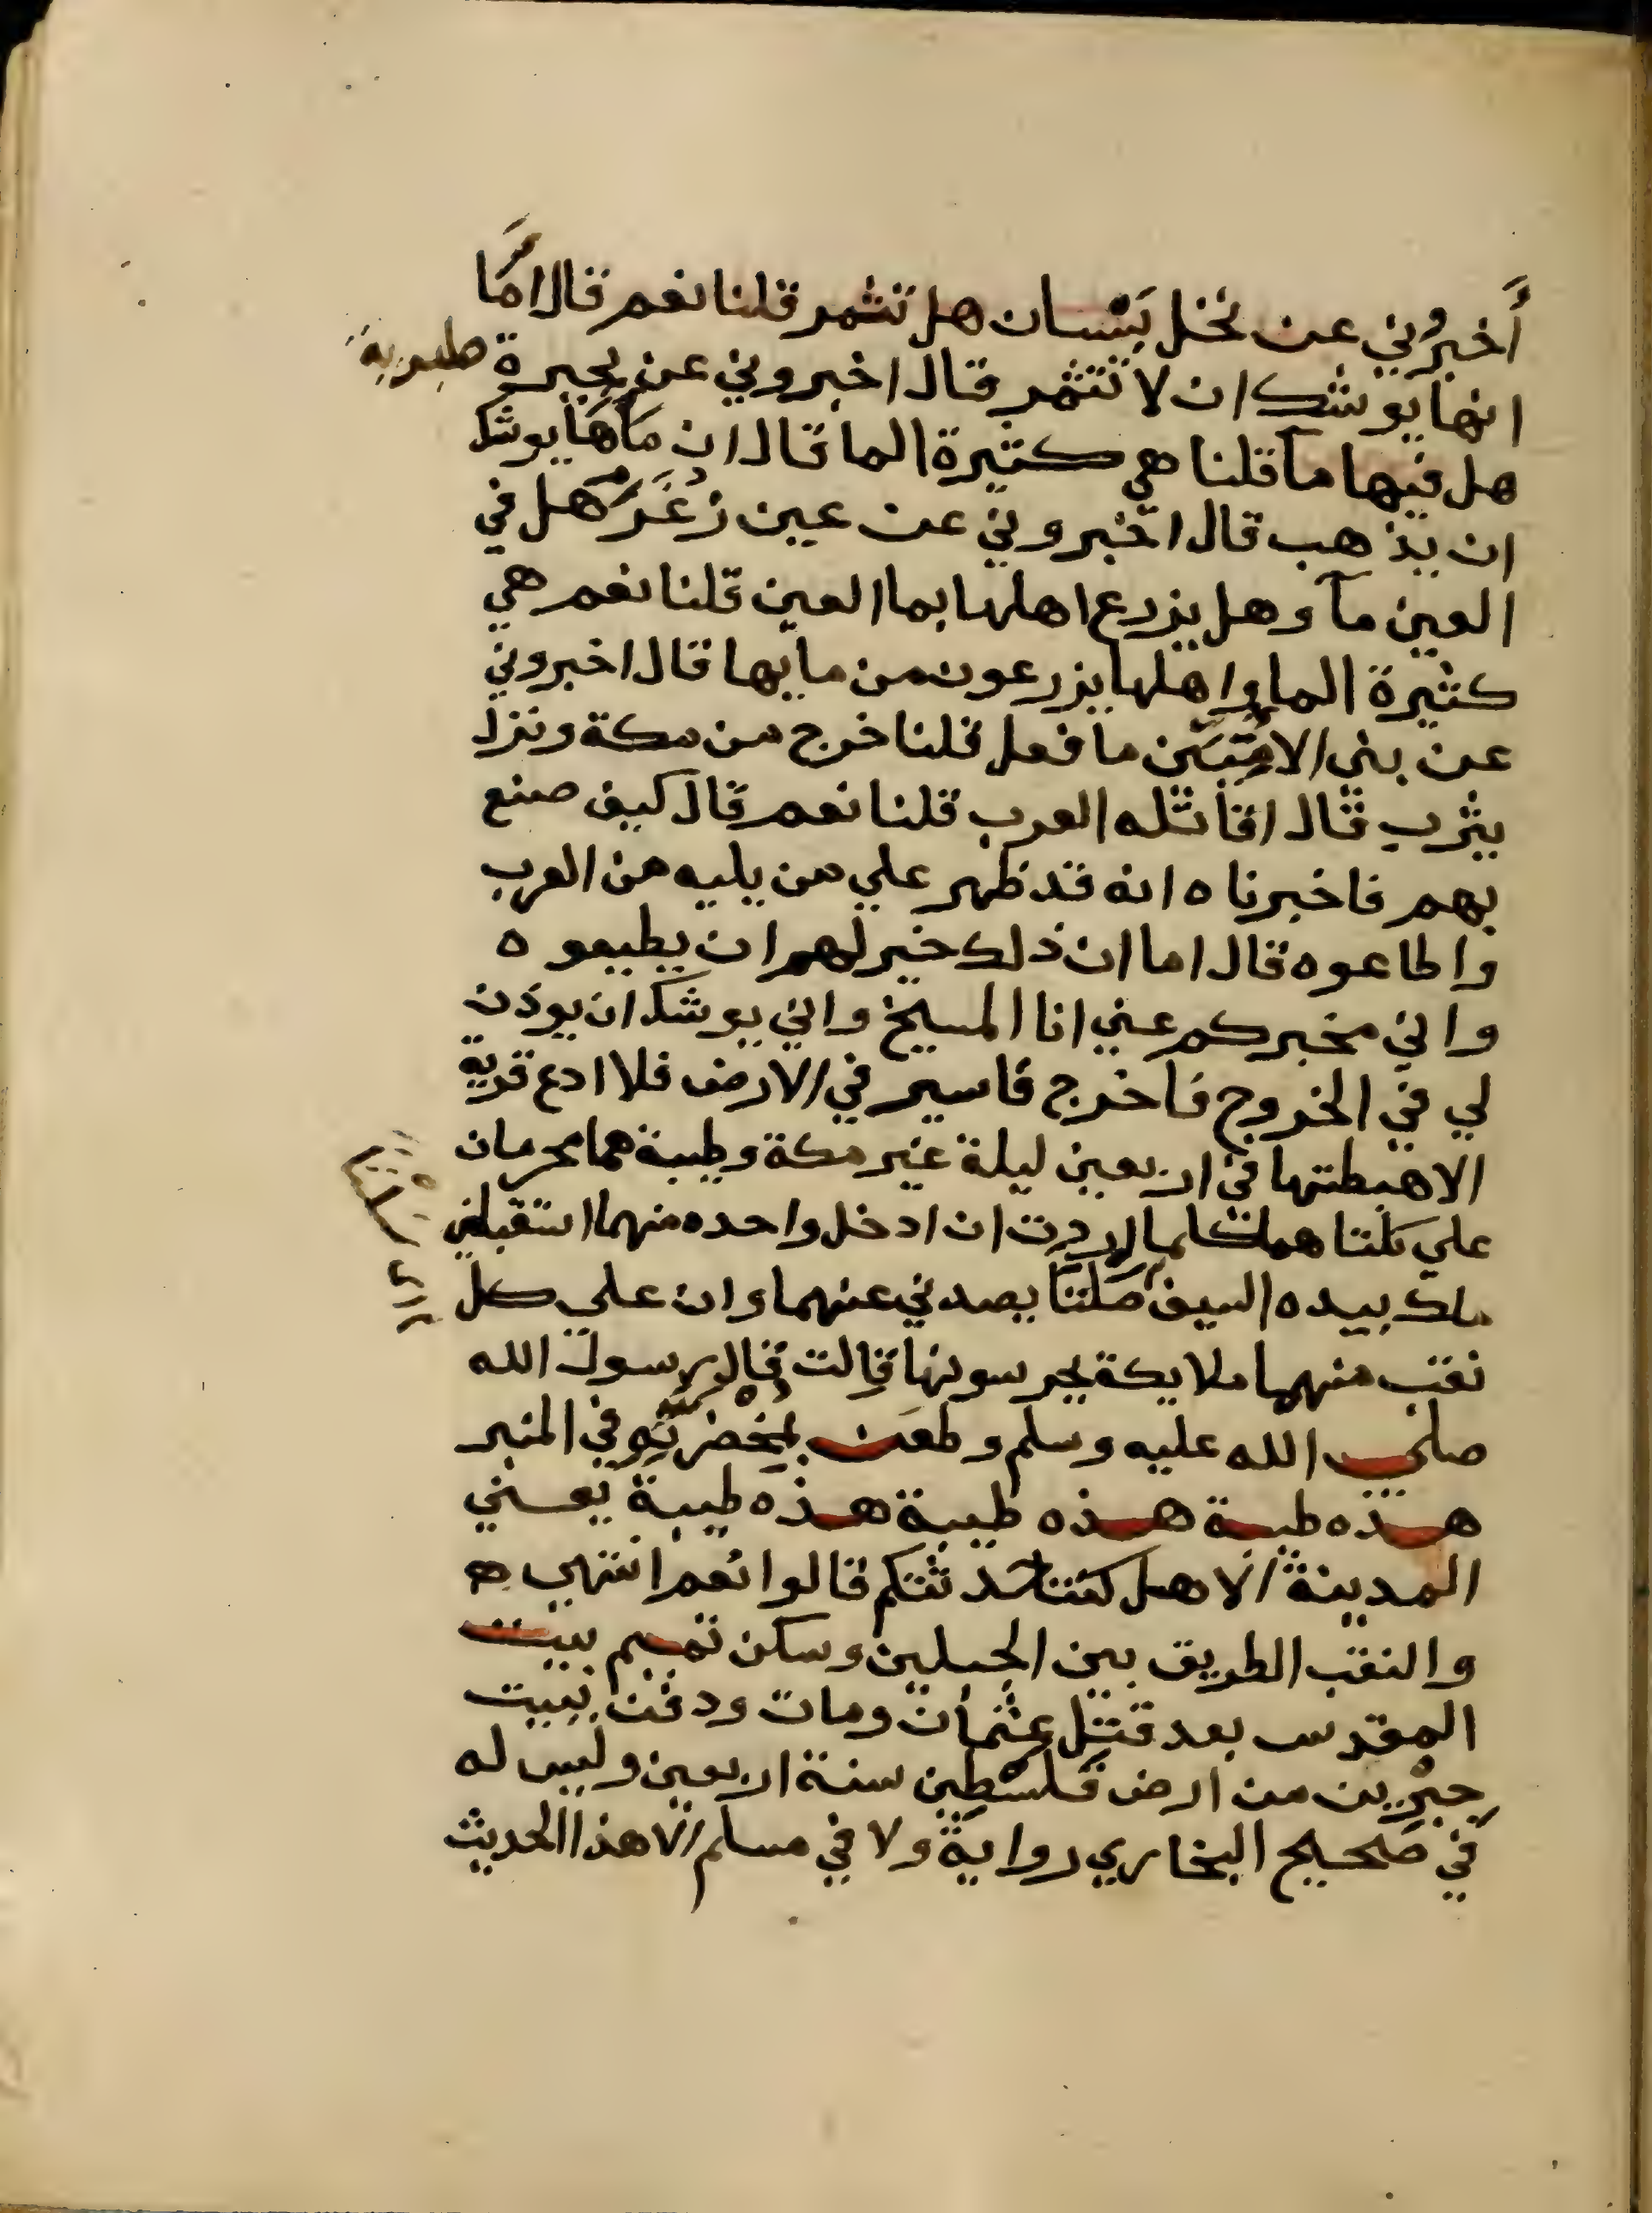 أَخبرُوني عن نخل بَيْسان هل تثمر قلنا نعم قال امَا
انها يوشك ان لا تثمر قال اخبروني عن بحيرة طبرية
هل فيها مآ قلنا هي كثيرة الما قال ان مآهَا يوشك
ان يذهب قال اخبروني عن عين زُغَرَ هل في
العين مآ وهل يزرع اهلها بما العين قلنا نعم هي
كثيرة الما واهلها يزرعون من مايها قال اخبروني
عن بني الامِّيِّين ما فعل قلنا خرج من مكة ونزل
يثرب قال اقاتله العرب قلنا نعم قال كيف صنع
بهم فاخبرناه انه قد ظهر علي من يليه من العرب
واطاعوه قال اما ان ذلك خير لهم ان يطيعوه
واني مخبركم عني انا المسيخ واني يوشك ان يوذن
لي في الخروج فاخرج فاسير في الارض فلا ادع قرية
الا هبطتها في اربعين ليلة غير مكة وطيبة هما محرمان
علي كلتا هما كلما اردت ان ادخل واحده منهما استقبلني
ملك بيده السيف صَلْتًا يصدني عنهما وان علي كل
نقب منهما ملايكة يحرسونها قالت قال رسول الله
صلي الله عليه وسلم وطعَن بمِخْصَرَتِهِ في المنبر
هذه طيبة هذه طيبة هذه طيبة يعني
المدينة الا هل كنت حدثتكم قالوا نعم انتهي ه
والنقب الطريق بين الجبلين وسكن تميم ببيت
المقدس بعد قتل عثمان ومات ودفن ببيت
جِبْرين من ارض فَلسْطين سنة اربعين وليس له
في صَحيح البخاري رواية ولا في مسلم الا هذا الحديث